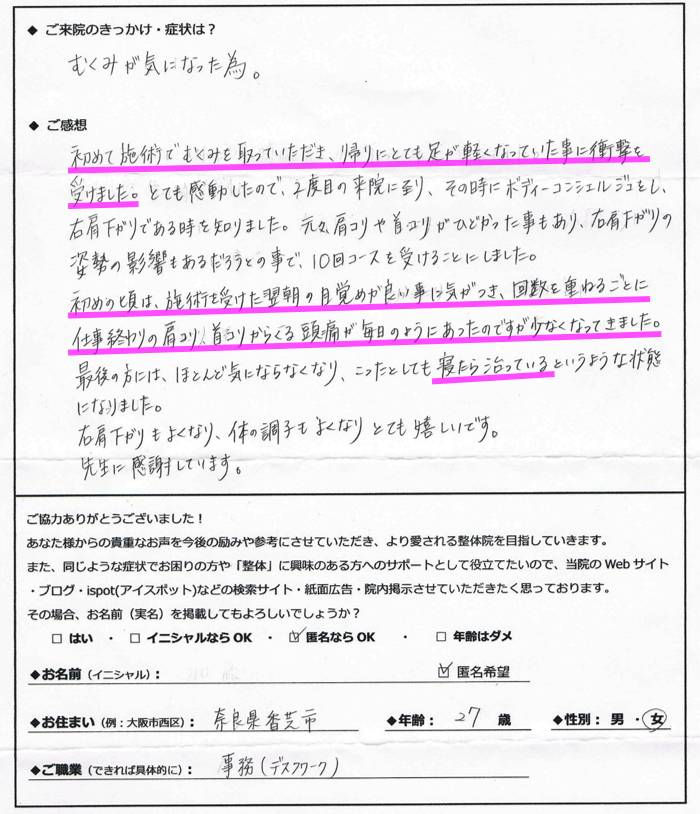 ◆ ご来院のきっかけ・症状は？
むくみが気になった為。
◆ ご感想
初めて施術でむくみを取っていただき、帰りにとても足が軽くなっていた事に衝撃を
受けました。とても感動したので、2度目の来院に至り、その時にボディーコンシェルジュをし、
右肩下がりである時を知りました。元々、肩コリや首コリがひどかった事もあり、右肩下がりの
姿勢の影響もあるだろうとの事で、10回コースを受けることにしました。
初めの頃は、施術を受けた翌朝の目覚めが良い事に気がつき、回数を重ねるごとに
仕事終わりの肩コリ、首コリからくる頭痛が毎日のようにあったのですが少なくなってきました。
最後の方には、ほとんど気にならなくなり、こったとしても寝たら治っているというような状態
になりました。
右肩下がりもよくなり、体の調子もよくなりとても嬉しいです。
先生に感謝しています。
ご協力ありがとうございました！
あなた様からの貴重なお声を今後の励みや参考にさせていただき、より愛される整体院を目指していきます。
また、同じような症状でお困りの方や「整体」に興味のある方へのサポートとして役立てたいので、当院の Web サイト
・ブログ・ispot(アイスポット)などの検索サイト・紙面広告・院内掲示させていただきたく思っております。
その場合、お名前（実名）を掲載してもよろしいでしょうか？
□ はい ・ □ イニシャルなら OK ・ ☑ 匿名なら OK ・ □ 年齢はダメ
◆お名前（イニシャル）： ☑ 匿名希望
◆お住まい（例：大阪市西区）： 奈良県香芝市 ◆年齢： 27 歳 ◆性別： 男 ・ 女
◆ご職業（できれば具体的に）： 事務(デスクワーク)